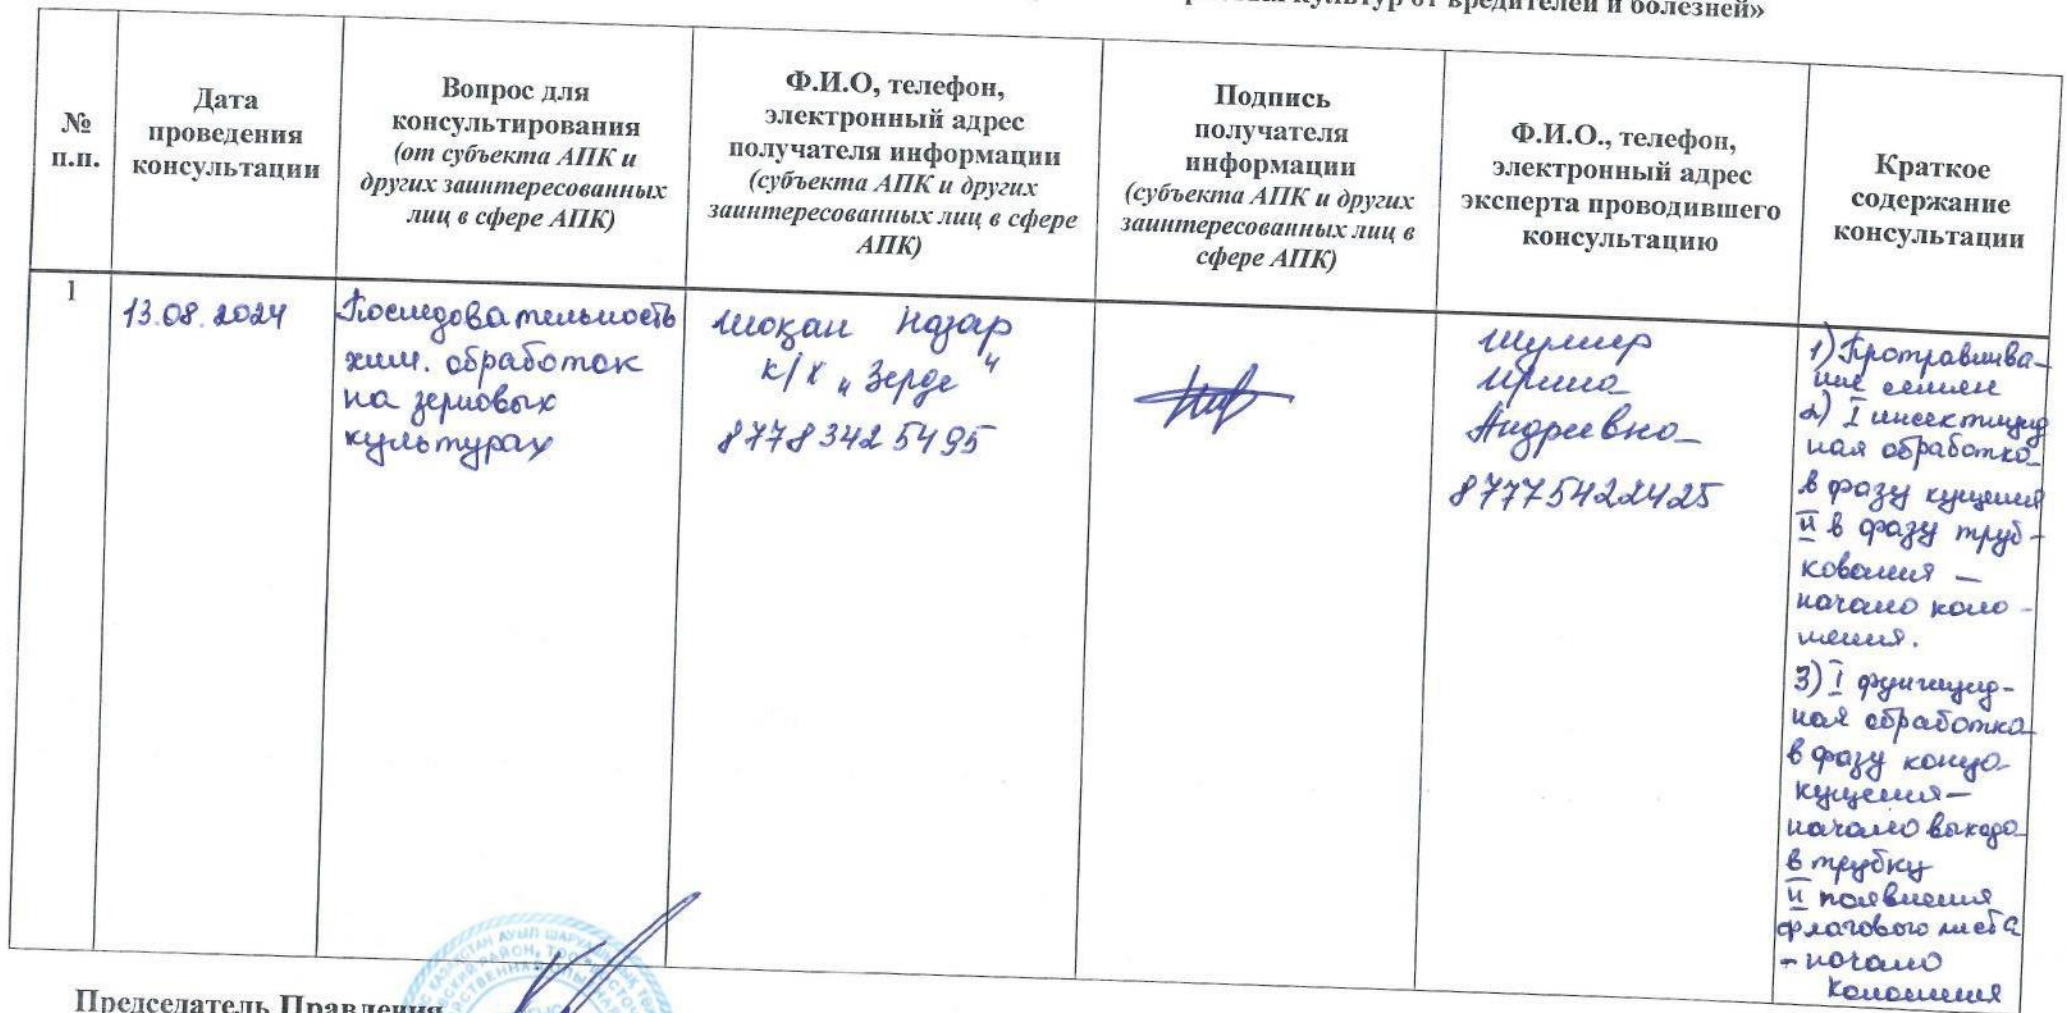 культур от вредителей и болезней»
№
п.п.
Дата
проведения
консультации
Вопрос для
консультирования
(от субъекта АПК и
других заинтересованных
лиц в сфере АПК)
Ф.И.О, телефон,
электронный адрес
получателя информации
(субъекта АПК и других
заинтересованных лиц в сфере
АПК)
Подпись
получателя
информации
(субъекта АПК и других
заинтересованных лиц в
сфере АПК)
Ф.И.О., телефон,
электронный адрес
эксперта проводившего
консультацию
Краткое
содержание
консультации
1
13.08.2024
Последовательность
хим. обработок
на зерновых
культурах
Шоқан Назар
к/х „Зерде"
87783425495
Шумер
Ирина
Андреевна
87775422425
1) Протравлива-
ние семян
2) I инсектицид
ная обработка
в фазу кущения
II в фазу труб-
кования —
начало коло-
шения.
3) I фунгицид-
ная обработка
в фазу конца
кущения —
начало выхода
в трубку
II появления
флагового листа
- начало
колошения
Председатель Правления